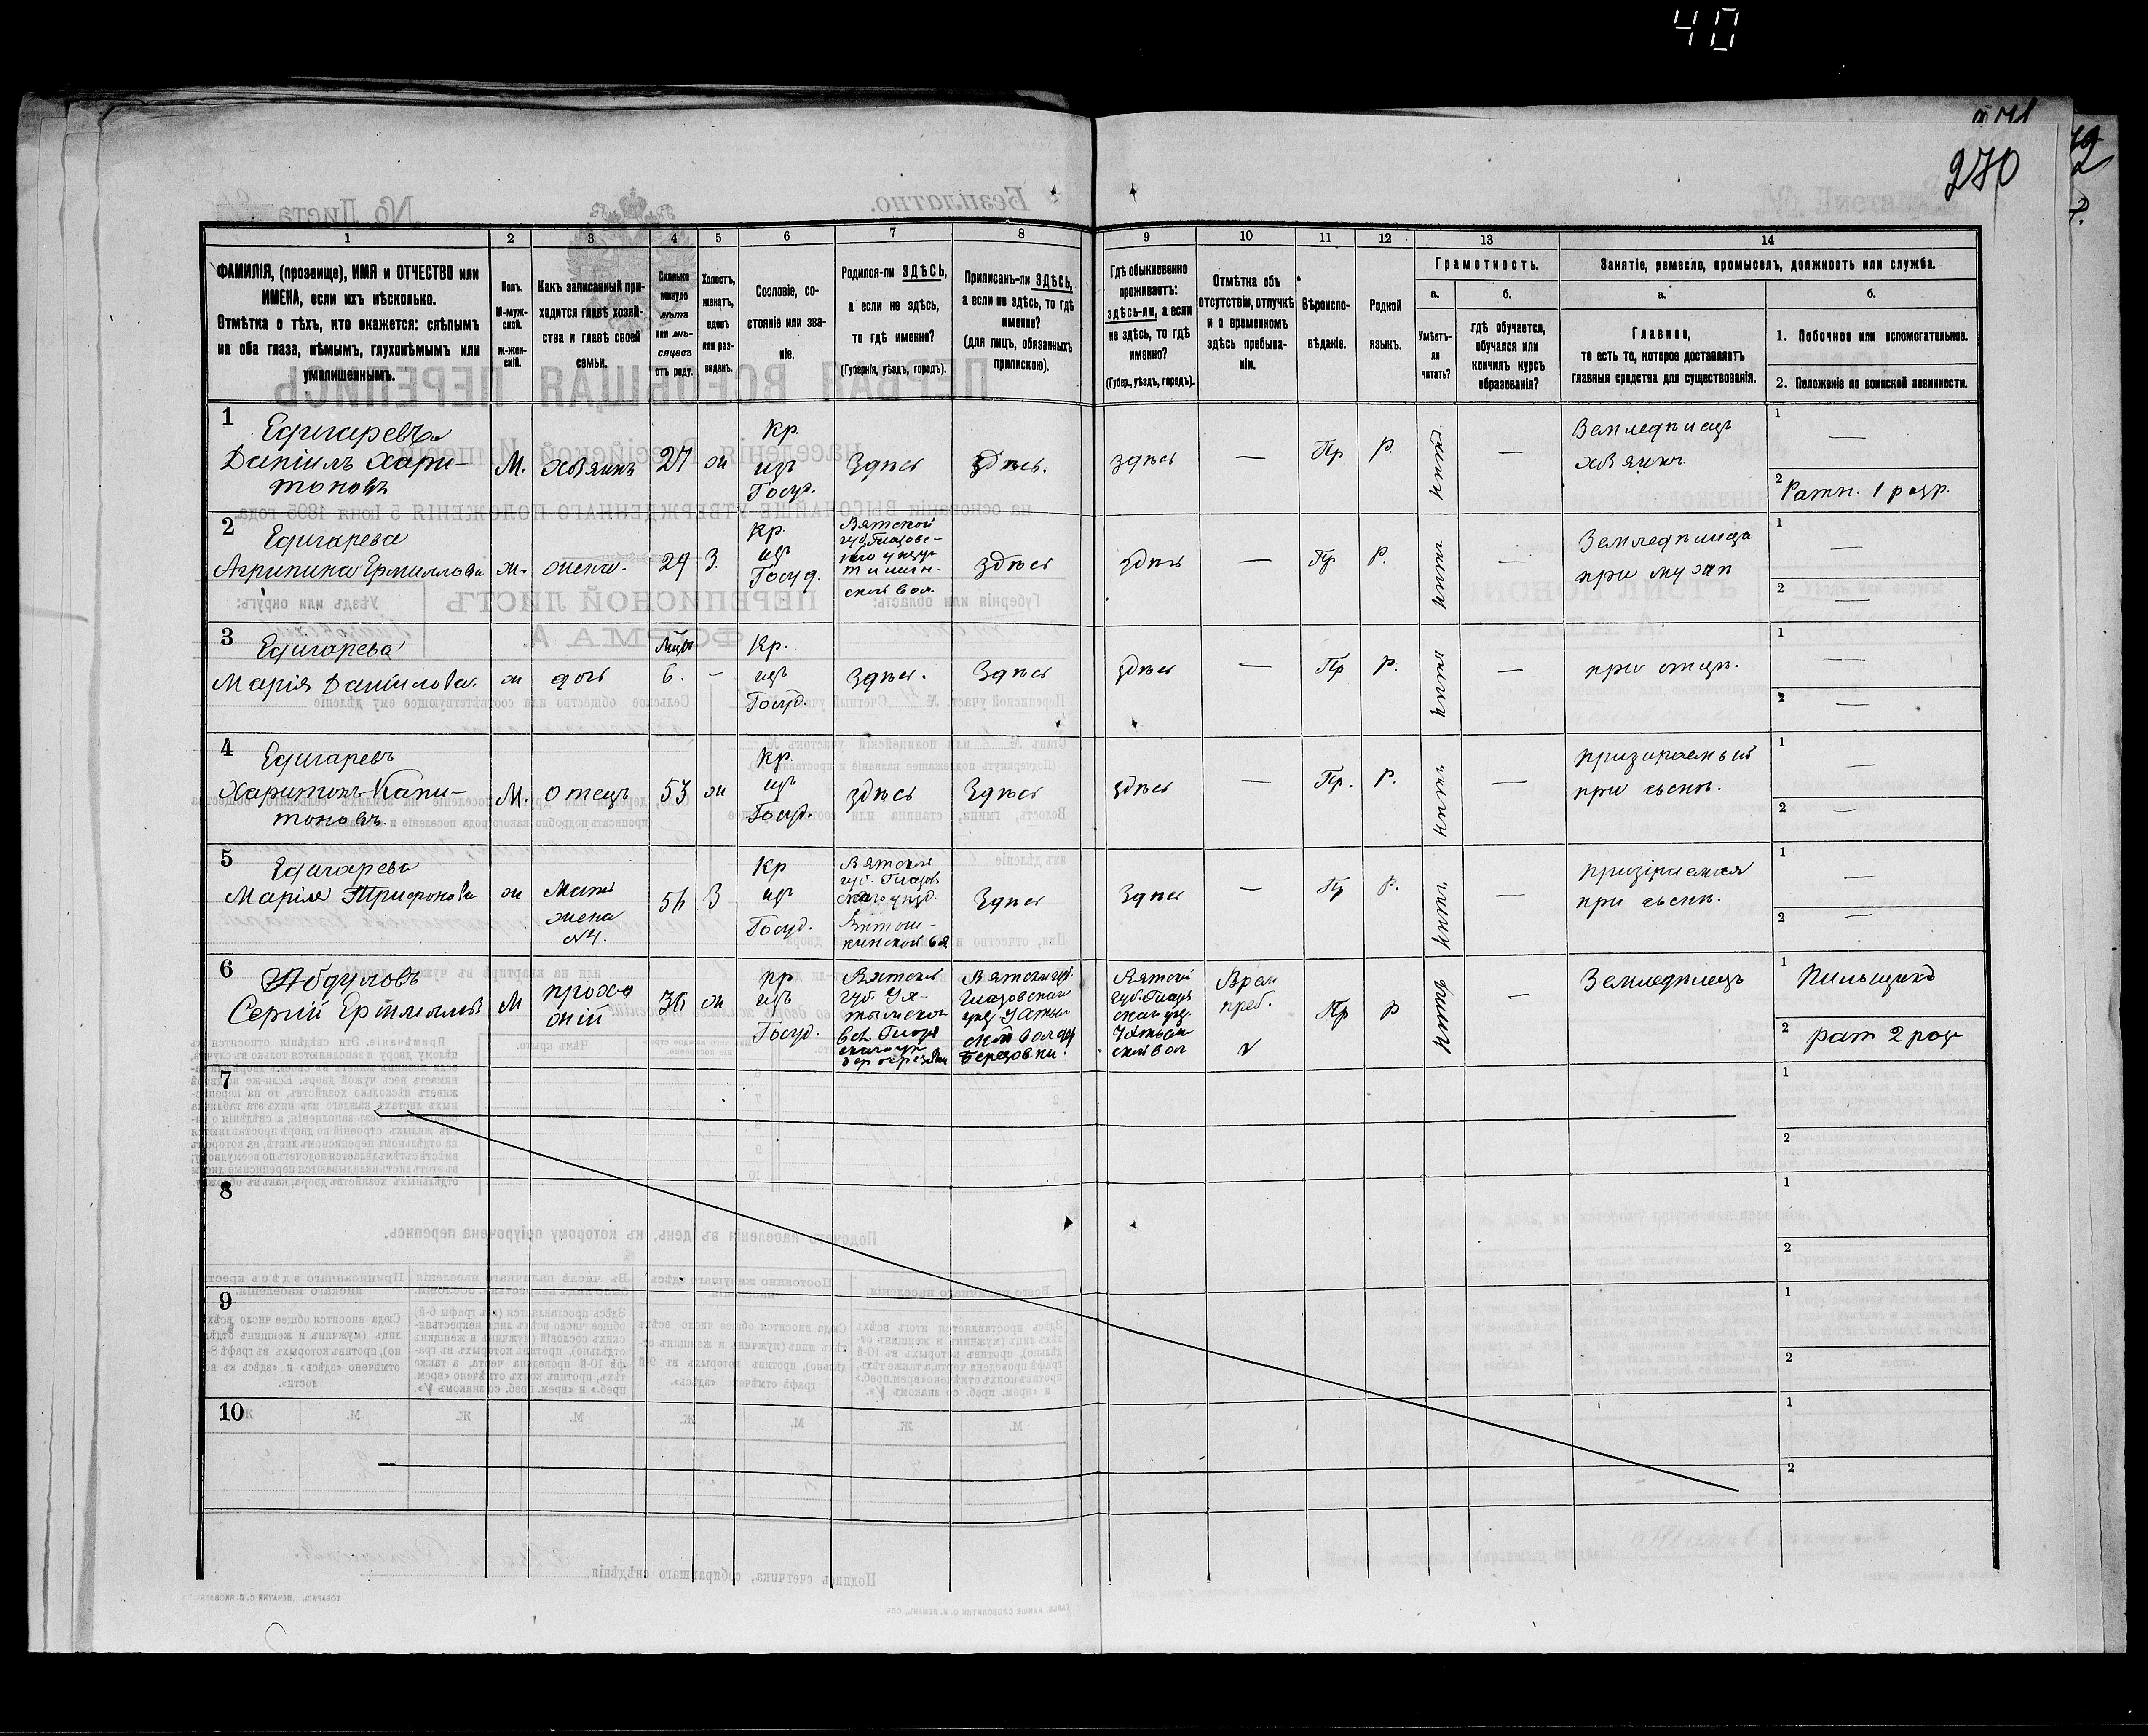 40
270
1
2
3
4
5
6
7
8
9
10
11
12
13
14
ФАМИЛІЯ, (прозвище), ИМЯ и ОТЧЕСТВО или
ИМЕНА, если ихъ нѣсколько.
Отмѣтка о тѣхъ, кто окажется: слѣпымъ
на оба глаза, нѣмымъ, глухонѣмымъ или
умалишеннымъ.
Полъ.
М-муж-
ской.
ж-жен-
скій.
Какъ записанный при-
ходится главѣ хозяй-
ства и главѣ своей
семьи.
Сколько
минуло
лѣтъ
или мѣ-
сяцевъ
отъ роду.
Холостъ,
женатъ,
вдовъ
или раз-
веденъ.
Сословіе, со-
стояніе или зва-
ніе.
Родился-ли ЗДѢСЬ,
а если не здѣсь,
то гдѣ именно?
(Губернія, уѣздъ, городъ).
Приписанъ-ли ЗДѢСЬ,
а если не здѣсь, то гдѣ
именно?
(для лицъ, обязанныхъ
припискою).
Гдѣ обыкновенно
проживаетъ:
здѣсь-ли, а если
не здѣсь, то гдѣ
именно?
(Губер., уѣздъ, городъ).
Отмѣтка объ
отсутствіи, отлучкѣ
и о временномъ
здѣсь пребыва-
ніи.
Вѣроиспо-
вѣданіе.
Родной
языкъ.
Грамотность.
а.
Умѣетъ-
ли
читать?
б.
гдѣ обучается,
обучался или
кончилъ курсъ
образованія?
Занятіе, ремесло, промыселъ, должность или служба.
а.
Главное,
то есть то, которое доставляетъ
главныя средства для существованія.
б.
1. Побочное или вспомогательное.
2. Положеніе по воинской повинности.
1
Едигаревъ
Даніилъ Хари-
тоновъ
М.
хозяинъ
27
ж
Кр.
изъ
Госуд.
Здѣсь
здѣсь.
здѣсь
—
Пр
Р.
нѣтъ
—
Земледѣлецъ
хозяинъ.
1
—
2
Ратн. 1 разр.
2
Едигарева
Агрипина Ермиллова
ж.
жена.
29
З.
Кр.
изъ
Госуд.
Вятской
губ. Глазовс-
каго уѣзда
ской вол.
здѣсь
здѣсь
—
Пр
Р.
нѣтъ
—
Земледѣлица
при мужѣ
1
—
2
—
3
Едигарева
Марія Даніилова.
ж
дочь
Мѣс
6.
–
Кр.
изъ
Госуд.
Здѣсь.
Здѣсь
здѣсь
—
Пр
Р.
нѣтъ
—
при отцѣ.
1
—
2
—
4
Едигаревъ
Харитонъ Капи-
тоновъ.
М.
отецъ
53
ж
Кр.
изъ
Госуд.
здѣсь
Здѣсь
здѣсь
—
Пр.
Р.
нѣтъ
—
призираемый
при сынѣ.
1
—
2
—
5
Едигарева
Марія Трифонова
ж
Мать
жена
№4.
56
З
Кр
изъ
Госуд.
Вятской
губ. Глазов
скаго уѣзд.
Здѣсь
Здѣсь
—
Пр
Р.
нѣтъ
—
призираемая
при сынѣ.
1
—
2
—
6
Сергій
М
прохо
жій
36
ж
кр
изъ
Госуд.
Вятской
губ.
Вятской губ.
Глазовскаго
Березовки.
Вятской
губ. Глазов
Врем
преб.
V
Пр
Р
нѣтъ
—
Земледѣлецъ
1
Пильщикъ
2
рат 2 раз
7
1
2
8
1
2
9
1
2
10
1
2